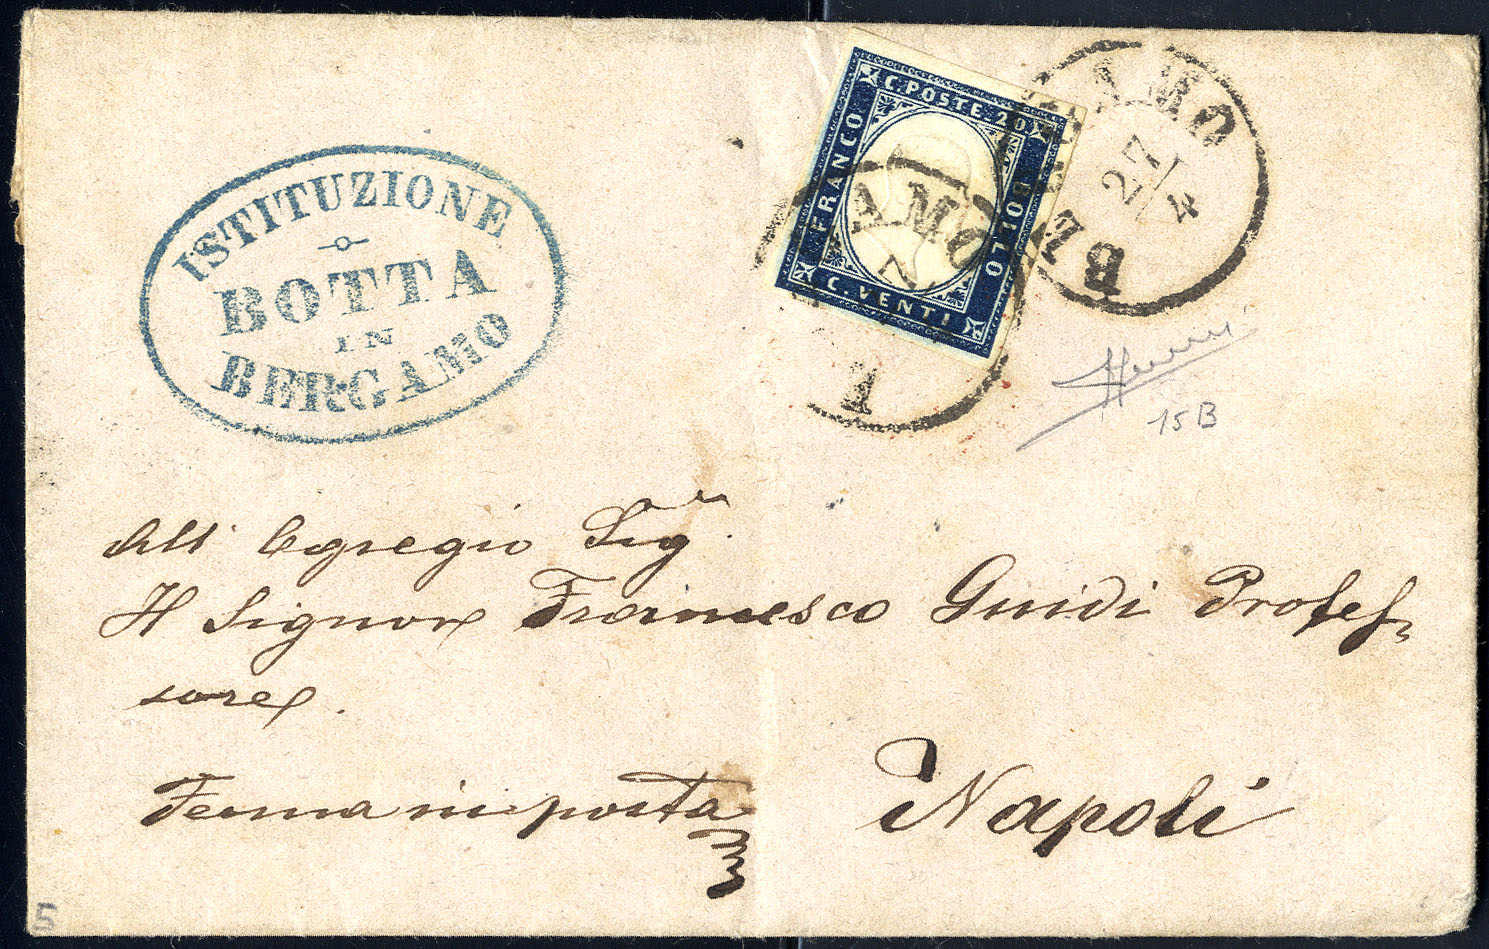 ISTITUZIONE
BOTTA
IN
BERGAMO
C. POSTE 20
FRANCO
BOLLO
C. VENTI
BERGAMO
27
4
AMO
15B
All' Egregio Sigr.
Il Signor Francesco Guidi Profes-
sore.
Ferma in posta
Napoli
5